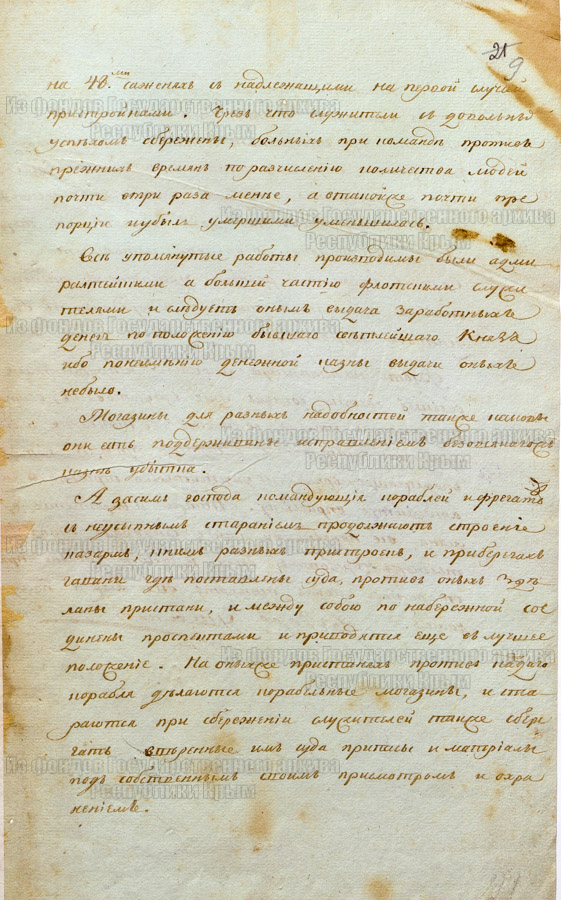 21
9
на 48ми саженяхъ съ надлежащими на первой случай
пристройками. Чрезъ что служители съ довольнымъ
успѣхомъ сбережены, больныхъ при командѣ противъ
прежнихъ временъ по разчисленію количества людей
почти втри раза менѣе, а втакойже почти пре
порціи и убыль умершими уменьшилась.
Всѣ упомянутые работы производимы были адми
ралтейскими а большей частію флотскими служи
телями и слѣдуетъ онымъ выдача заработныхъ
денегъ по положенію бывшаго свѣтлейшаго Князя
ибо понеимѣнію денежной казны выдачи онымъ
небыло.
Магазины для разныхъ надобностей также каковы
они есть поддерживаны исправленіемъ безъ
казнѣ убытка.
А засимъ господа командующія кораблей и фрегатовъ
съ неусыпнымъ стараніемъ продолжаютъ строеніе
казармъ, книмъ разныхъ пристроекъ, и приберегахъ
гавани гдѣ поставлены суда, противъ оныхъ здѣ
ланы пристани, и между собою по набережной сое
динены проспектами и приводятся еще въ лучшее
положеніе. На оныхже пристаняхъ противъ каждаго
корабля дѣлаются корабельные магазины, и ста
раются при сбереженіи служителей также сбере
гать ввѣренные имъ суда припасы и матеріалы
подъ собственнымъ своимъ присмотромъ и охра
неніемъ.
Из фондов Государственного архива
Республики Крым